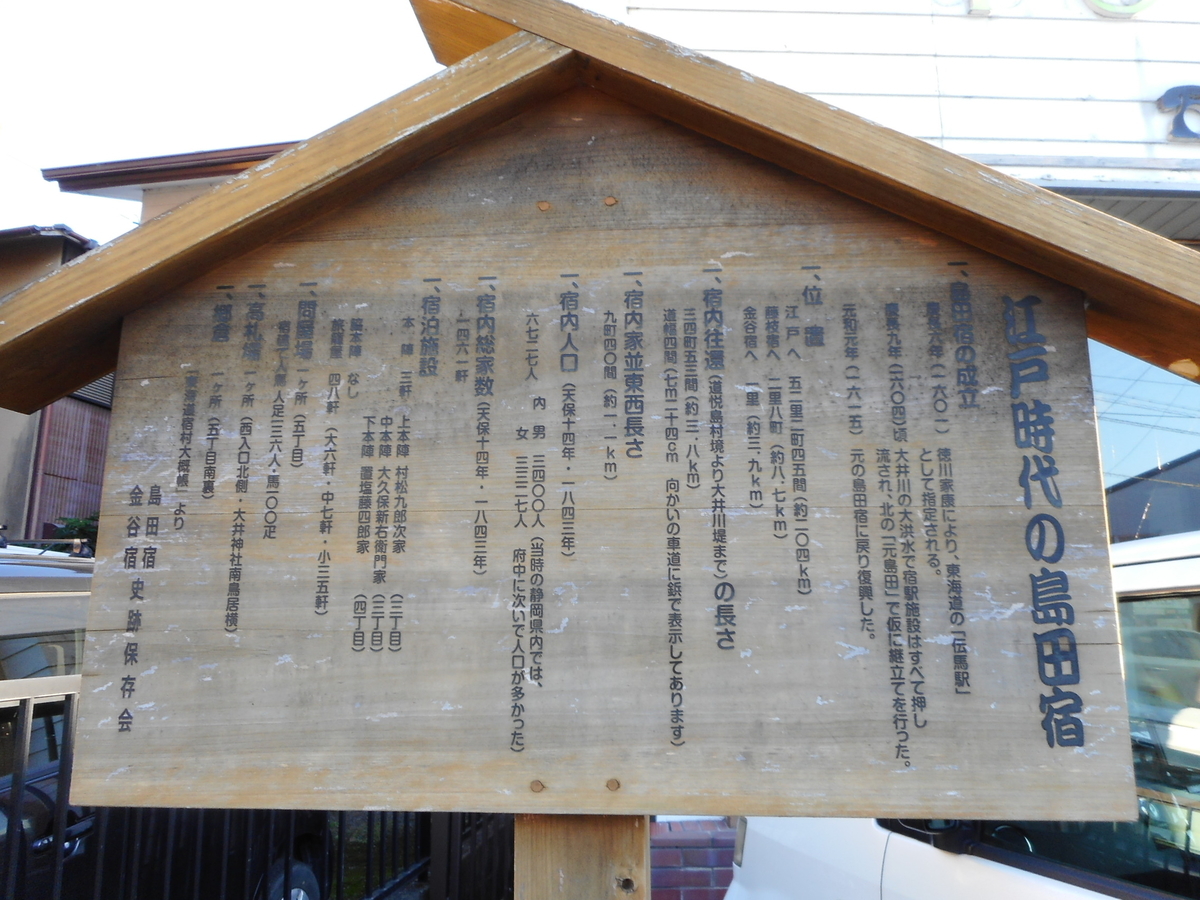 江戸時代の島田宿
一、島田宿の成立
慶長六年(一六〇一) 徳川家康により、東海道の「伝馬駅」
として指定される。
慶長九年(一六〇四)頃 大井川の大洪水で宿駅施設はすべて押し
流され、北の「元島田」で仮に継立てを行った。
元和元年(一六一五) 元の島田宿に戻り復興した。
一、位置
江戸へ 五二里二町四五間(約二〇四km)
藤枝宿へ 二里八町(約八、七km)
金谷宿へ 一里(約三、九km)
一、宿内往還(道悦島村境より大井川堤まで)の長さ
三四町五三間(約三・八km)
道幅四間(七m二十四cm 向かいの車道に鋲で表示してあります)
一、宿内家並東西長さ
九町四〇間(約一・一km)
一、宿内人口(天保十四年・一八四三年)
六七二七人 内 男 三四〇〇人(当時の静岡県内では、
女 三三二七人 府中に次いで人口が多かった)
一、宿内総家数(天保十四年・一八四三年)
一四六一軒
一、宿泊施設
本陣 三軒 上本陣 村松九郎次家 (三丁目)
中本陣 大久保新右衛門家 (三丁目)
下本陣 置塩藤四郎家 (四丁目)
脇本陣 なし
旅籠屋 四八軒(大六軒・中七軒・小三五軒)
一、問屋場 一ヶ所(五丁目)
宿建て人馬 人足一三六人・馬一〇〇疋
一、高札場 一ヶ所(西入口北側・大井神社南鳥居横)
一、郷倉 一ヶ所(五丁目南裏)
「東海道宿村大概帳」より
島田宿
金谷宿 史跡保存会